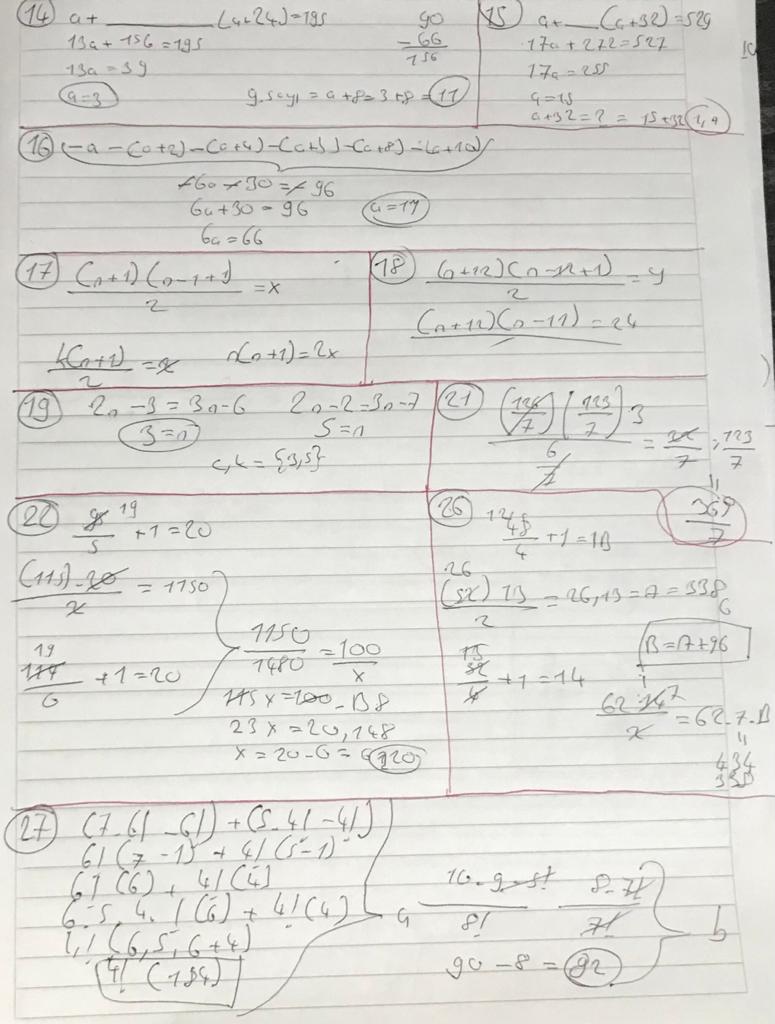 14 a+ ______ (a+24)=195
13a+156=195
13a=39
a=3
90
-66
156
g.sayı = a+8=3+8=11
15 a+ __ (a+32)=529
17a+272=527
17a=255
a=15
a+32=? = 15+32
16 (-a-(a+2)-(a+4)-(a+6)-(a+8)-(a+10)
-6a-30=-96
6a+30=96
6a=66
17 (n+1)(n-1+1)
2
=x
n(n+1)
2
=x
n(n+1)=2x
18 (n+12)(n-12+1)
2
=y
(n+12)(n-11)=24
19 2n-3=3n-6
2n-2=3n-7
3=n
5=n
= {3,5}
21 (126/7) (123/7) 3
6
7
= 
7
123
7
369
7
22 19
5
+1=20
(115).20
2
= 1150
19
114
6
+1=20
1150
1480
=
100
x
115x=100.
23x=20.148
x=20.6=120
26 12
48
4
+1=13
26
(52) 13
2
= 26.13=A=338
B=A+96
13
52
4
+1=14
62.14 7
2
=62.7=B
434
338
27 (7.6!-6!)+(5.4!-4!)
6!(7-1)+4!(5-1)
6!(6)+4!(4)
6.5.4!(6)+4!(4)
4!(6.5.6+4)
4!(184)
a
10.9.8!
8!
8.7!
7!
90-8=82
b